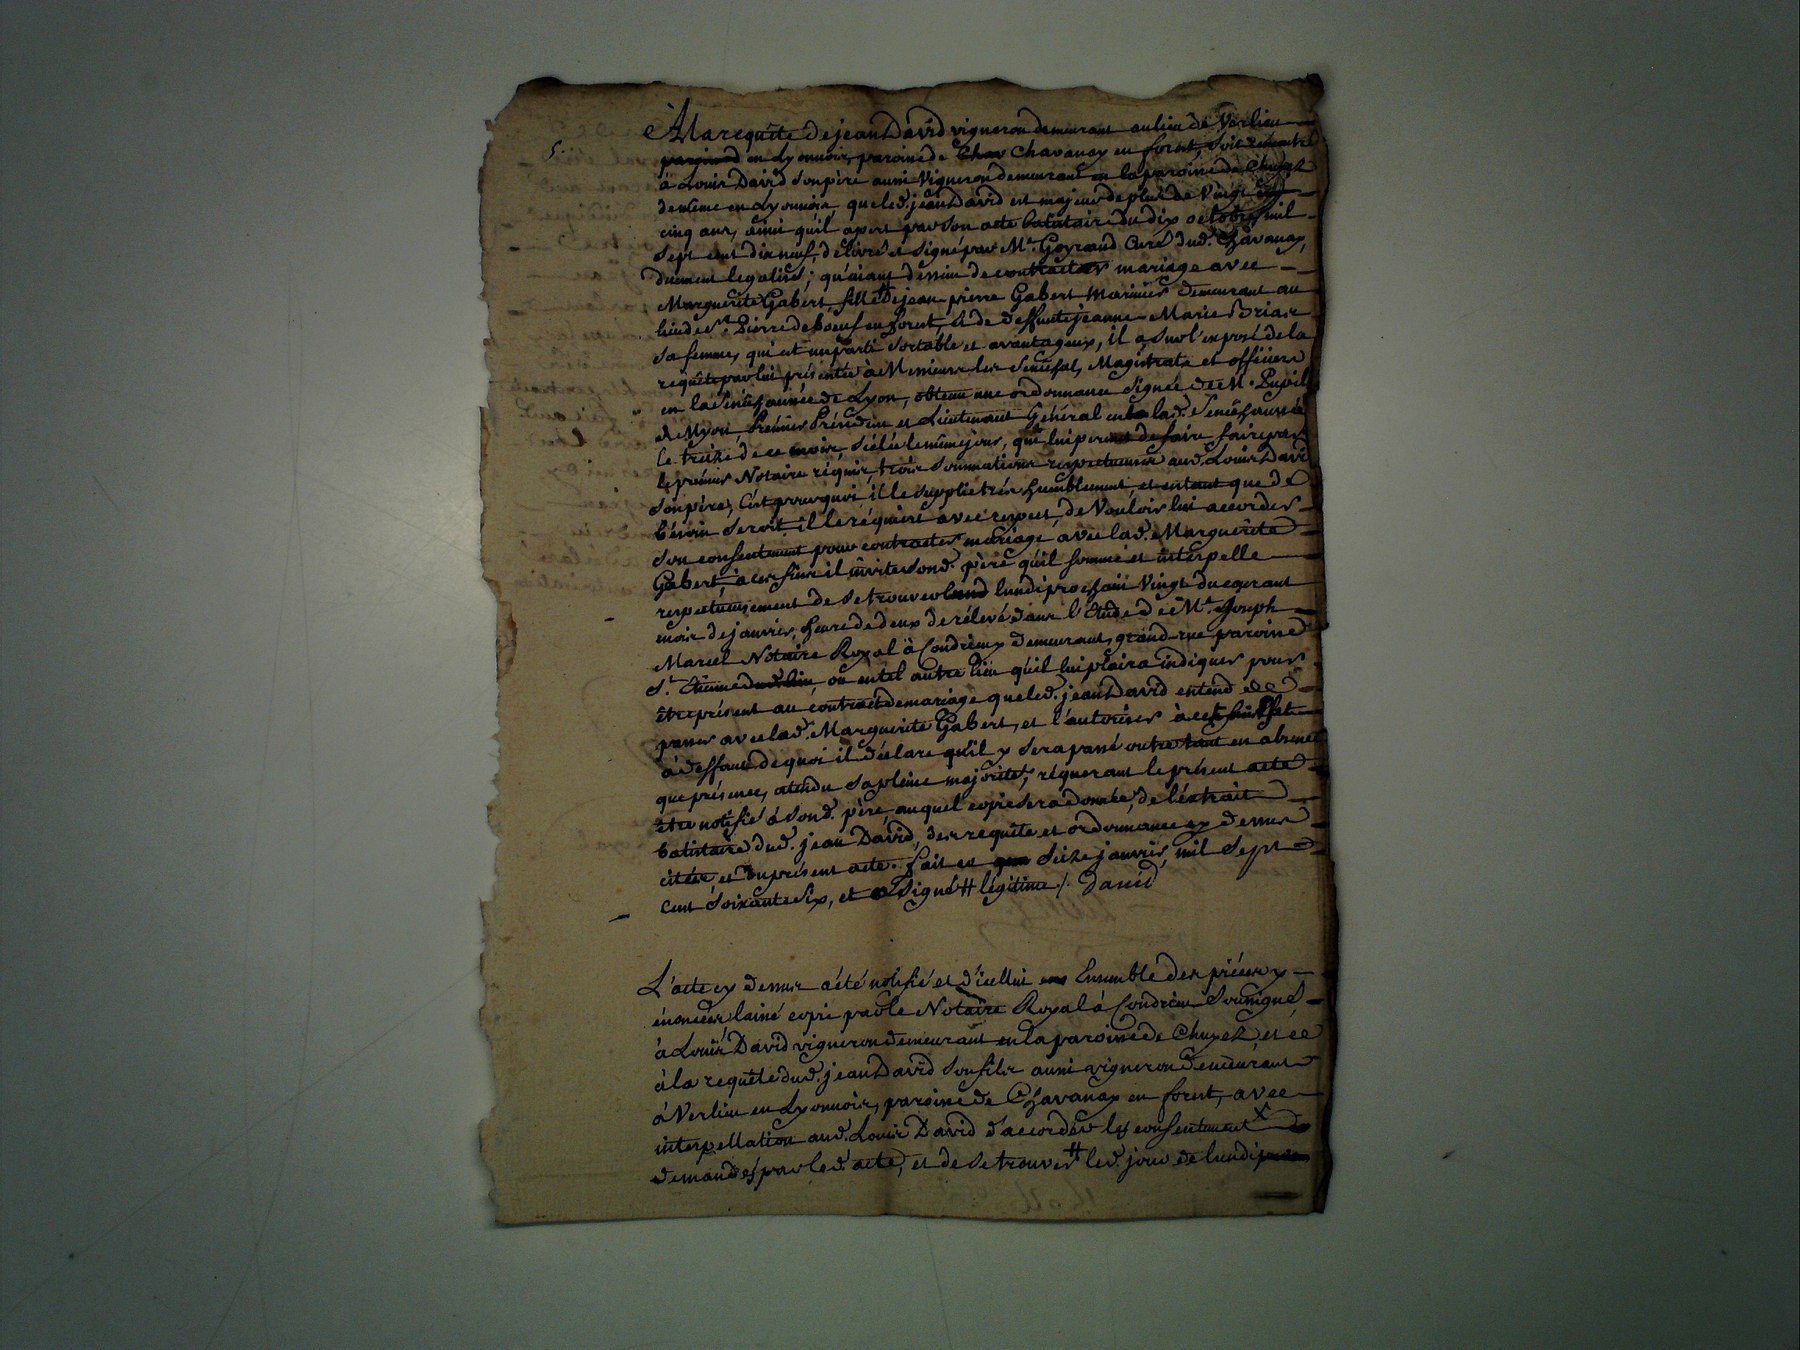 A La requête de jean David vigneron demeurant au lieu de Verlieu
en Lyonnois, paroisse de Chavanay en forest, soit remontré
à Louis David son père aussi vigneron demeurant en la paroisse de Chuyez
de même en Lyonnois que led. jean David est majeur de plus de vingt
cinq ans, ainsi qu'il apert par son acte batistaire du dix octobre mil
sept cent dix neuf, délivré et signé par Mr. Goyrand Curé dud. Chavanay,
duement legalisé; qu'aiant dessein de contracter mariage avec
Marguerite Gabert fille # de jean pierre Gabert marinier demeurant au
lieu de St. Pierre de boeuf en forest, et de deffunte jeanne Marie Briase
sa femme, qui est un parti sortable et avantageux, il a sur l'exposé de la
requête par lui présentée à Messieurs les Sénéchal, Magistrats et officiers
en la Sénéchaussée de Lyon, obtenu une ordonnance signée de M. Pupil
de Myon, Premier Président et Lieutenant Général en lad. Sénéchaussée
le treize de ce mois, scélée le même jour, qui lui permet de faire faire par
le premier Notaire requis, trois sommations respectueuses aud. Louis David
son père, C'est pourquoi il le supplie très humblement, et entant que de
bésoin seroit il le réquiert avec respect, de Vouloir lui accorder
son consentement pour contracter mariage avec lad. Marguerite
Gabert, à ces fins il invite sond. père qu'il somme et interpelle
respectueusement de se trouver lundi prochain vingt du courant
mois de janvier, heure de deux de rélévé dans l'Etude de Mr. Joseph
Marcel Notaire Royal à Condrieux demeurant, grand-rue paroisse
St. Etienne, ou en tel autre lieu qu'il lui plaira indiquer pour
être présent au contract de mariage que led. jean David entend de
passer avec lad. Marguerite Gabert, et l'autoriser à cet effet
à deffaut de quoi il déclare qu'il y sera passé outre tant en absence
que présence, atendu sa pleine majorité, réquerant le présent acte
être notifié à sond. père, auquel copie sera donnée, de l'éxtrait
batistaire dud. jean David, des requête et ordonnance cy dessus
citées et du présent acte. fait ce seize janvier, mil sept
cent soixante six, et a signé # légitime /. David
L'acte cy dessus a été notifié et d'icellui Ensemble des piéces y
énoncées laissé copie par le Notaire Royal à Condrieu soussigné
à Louis David vigneron demeurant en la paroisse de Chuyez, et ce
à la requête dud. jean David son fils aussi vigneron demeurant
à Verlieu en Lyonnois, paroisse de Chavanay en forest, avec
interpellation aud. Louis David d'accorder le consentement X
demandé par led. acte, et de se trouver # led. jour de lundi